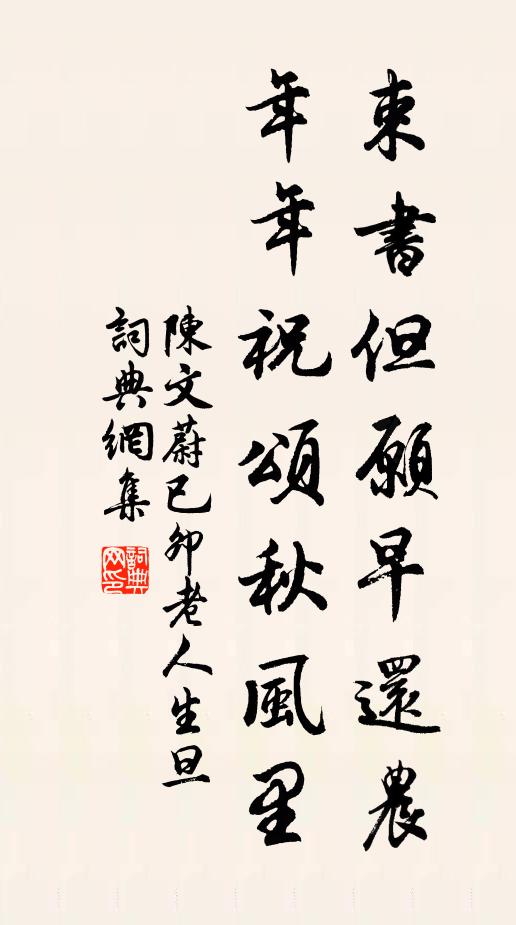 東書但願早還農
年年祝頌秋風里
陳文蔚已卯老人生旦
詞典網集
詞典
网印